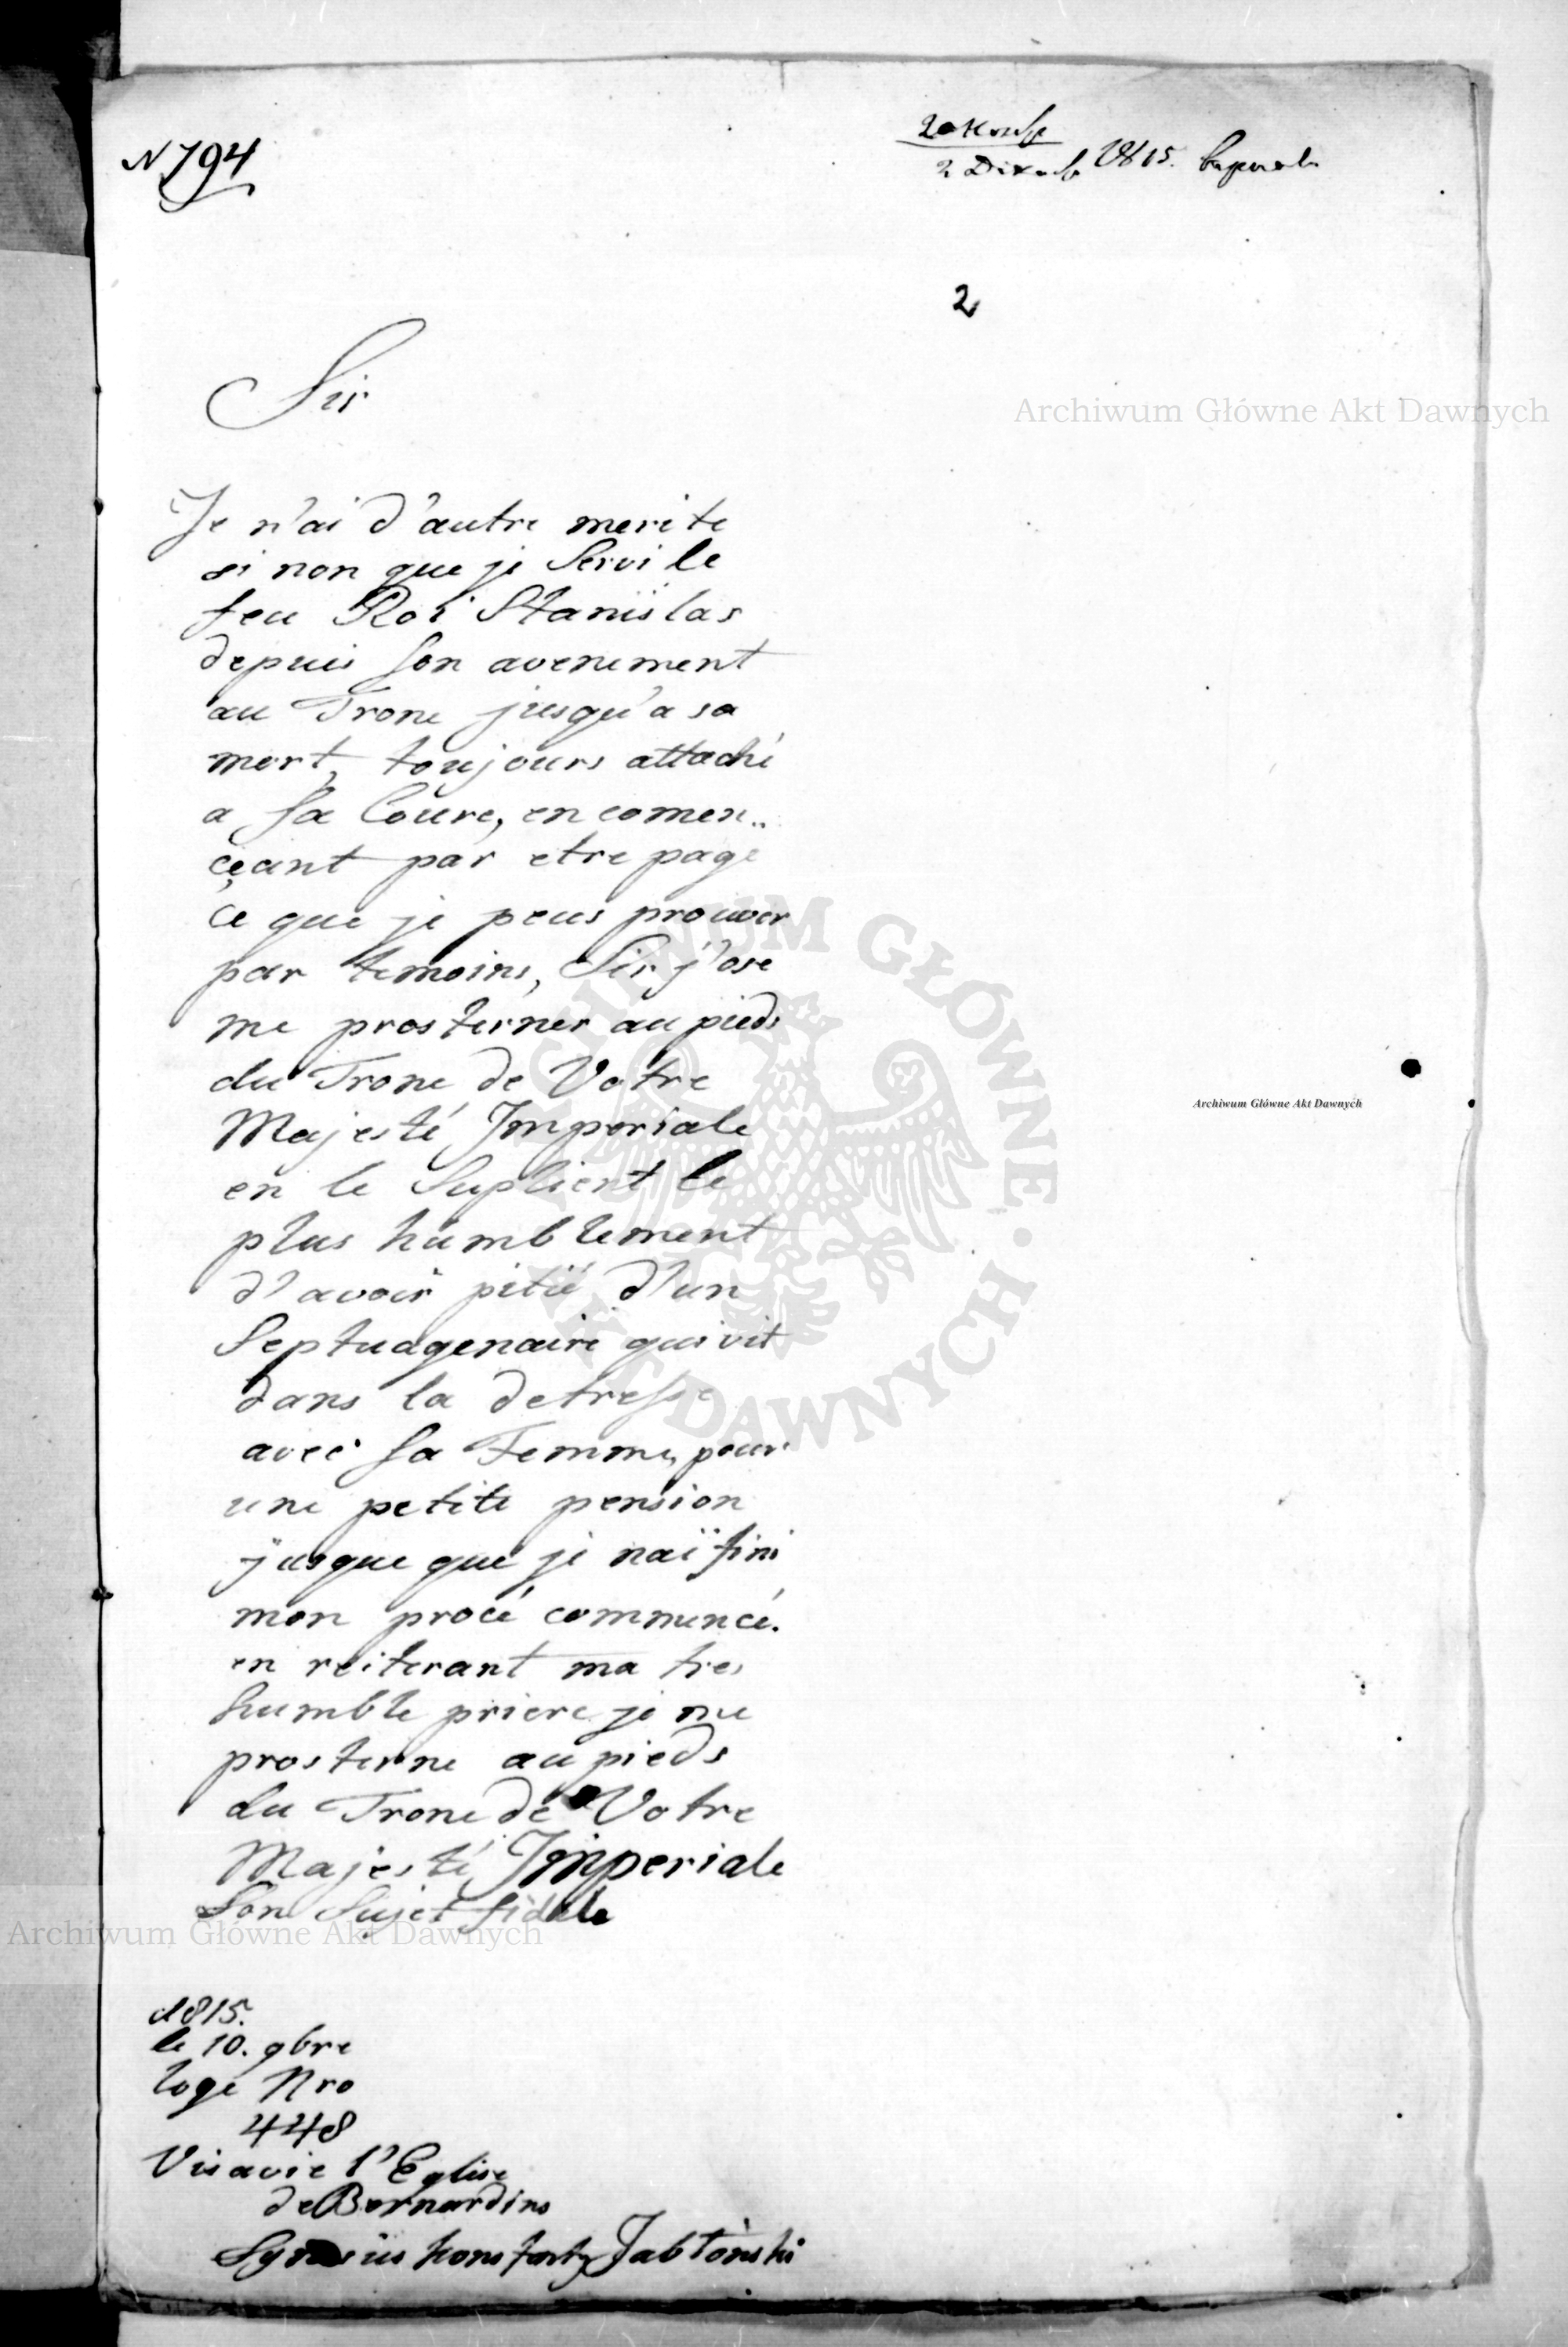 N 794
1815.
2
Sir
Je n'ai d'autre merite
si non que je Servi le
feu Roi Stanislas
depuis Son avenement
au Trone jusqu'a sa
mort, toujours attaché
a Sa Coure, en comen..
çeant par etre page
ce que je peus prouver
par temoins, Sir j'ose
me prosterner au pieds
du Trone de Votre
Majesté Imperiale
en le Suplient le
plus humblement
d'avoir pitié d'un
Septuagenaire qui vit
dans la detresse
avec Sa Femme, pour
une petite pension
jusque que je naï fini
mon procé commencé.
en reiterant ma tres
humble priere je me
prosterne au pieds
du Trone de Votre
Majesté Imperiale
Son Sujet fidele
1815.
le 10. 9bre
loge Nro
448
Visavie l'Eglise
de Bernardins
Konstanty Jabłoński
Archiwum Główne Akt Dawnych
Archiwum Główne Akt Dawnych
Archiwum Główne Akt Dawnych
ARCHIWUM GŁÓWNE · AKT DAWNYCH ·